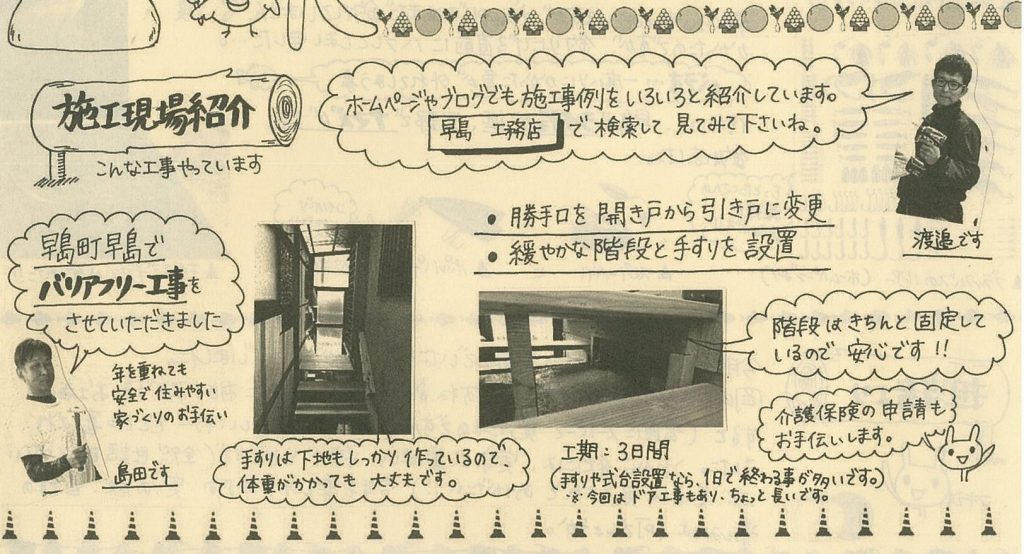 施工現場紹介
こんな工事やっています
ホームページやブログでも施工事例をいろいろと紹介しています。
早島 工務店 で検索して見てみて下さいね。
渡邉です
・勝手口を開き戸から引き戸に変更
・緩やかな階段と手すりを設置
早島町早島で
バリアフリー工事を
させていただきました
年を重ねても
安全で住みやすい
家づくりのお手伝い
島田です
手すりは下地もしっかり作っているので、
体重がかかっても大丈夫です。
階段はきちんと固定して
いるので安心です!!
介護保険の申請も
お手伝いします。
工期:3日間
(手すりや式台設置なら、1日で終わる事が多いです。)
※今回はドア工事もあり、ちょっと長いです。